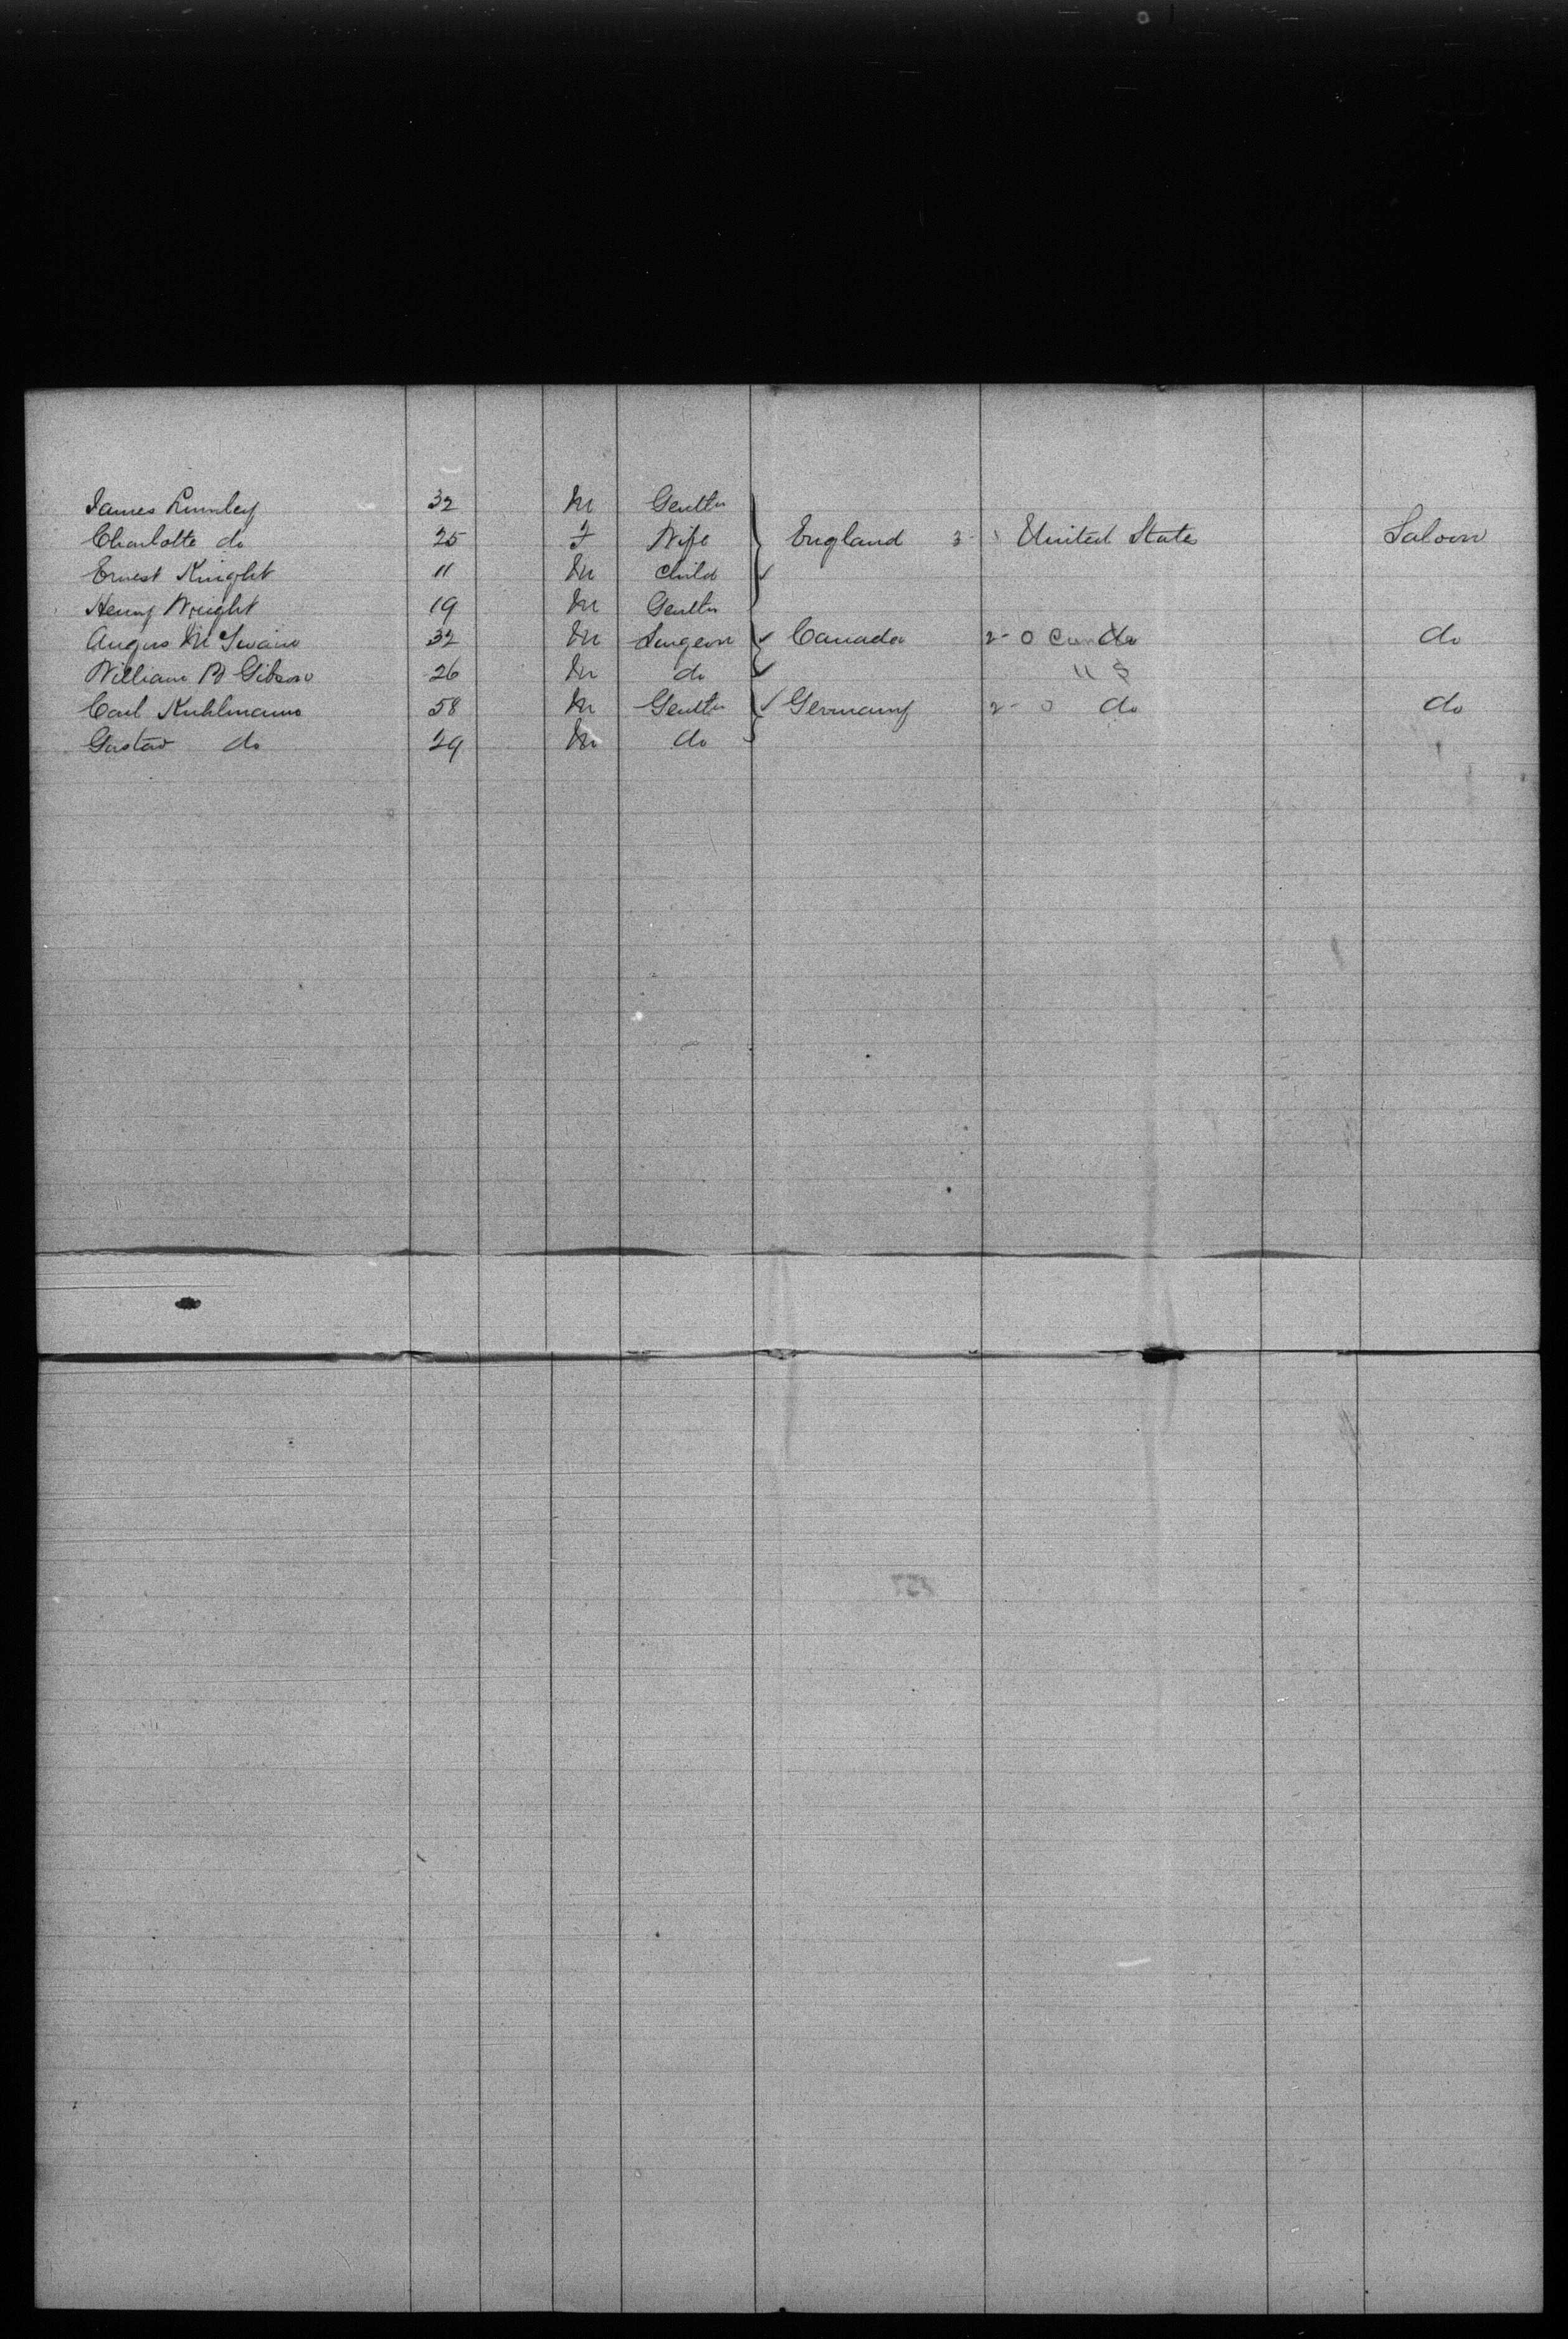 James Lumley 32 M Gentln
Charlotte do 25 F Wife England 3- United States Saloon
Ernest Knight 11 M Child
Henry Wright 19 M Gentln
Angus McSwain 32 M Surgeon Canada 2- 0 Can do do
William B Gibson 26 M do U S
Carl Kuhlmann 58 M Gentln Germany 2- 0 do do
Gustav do 29 M do